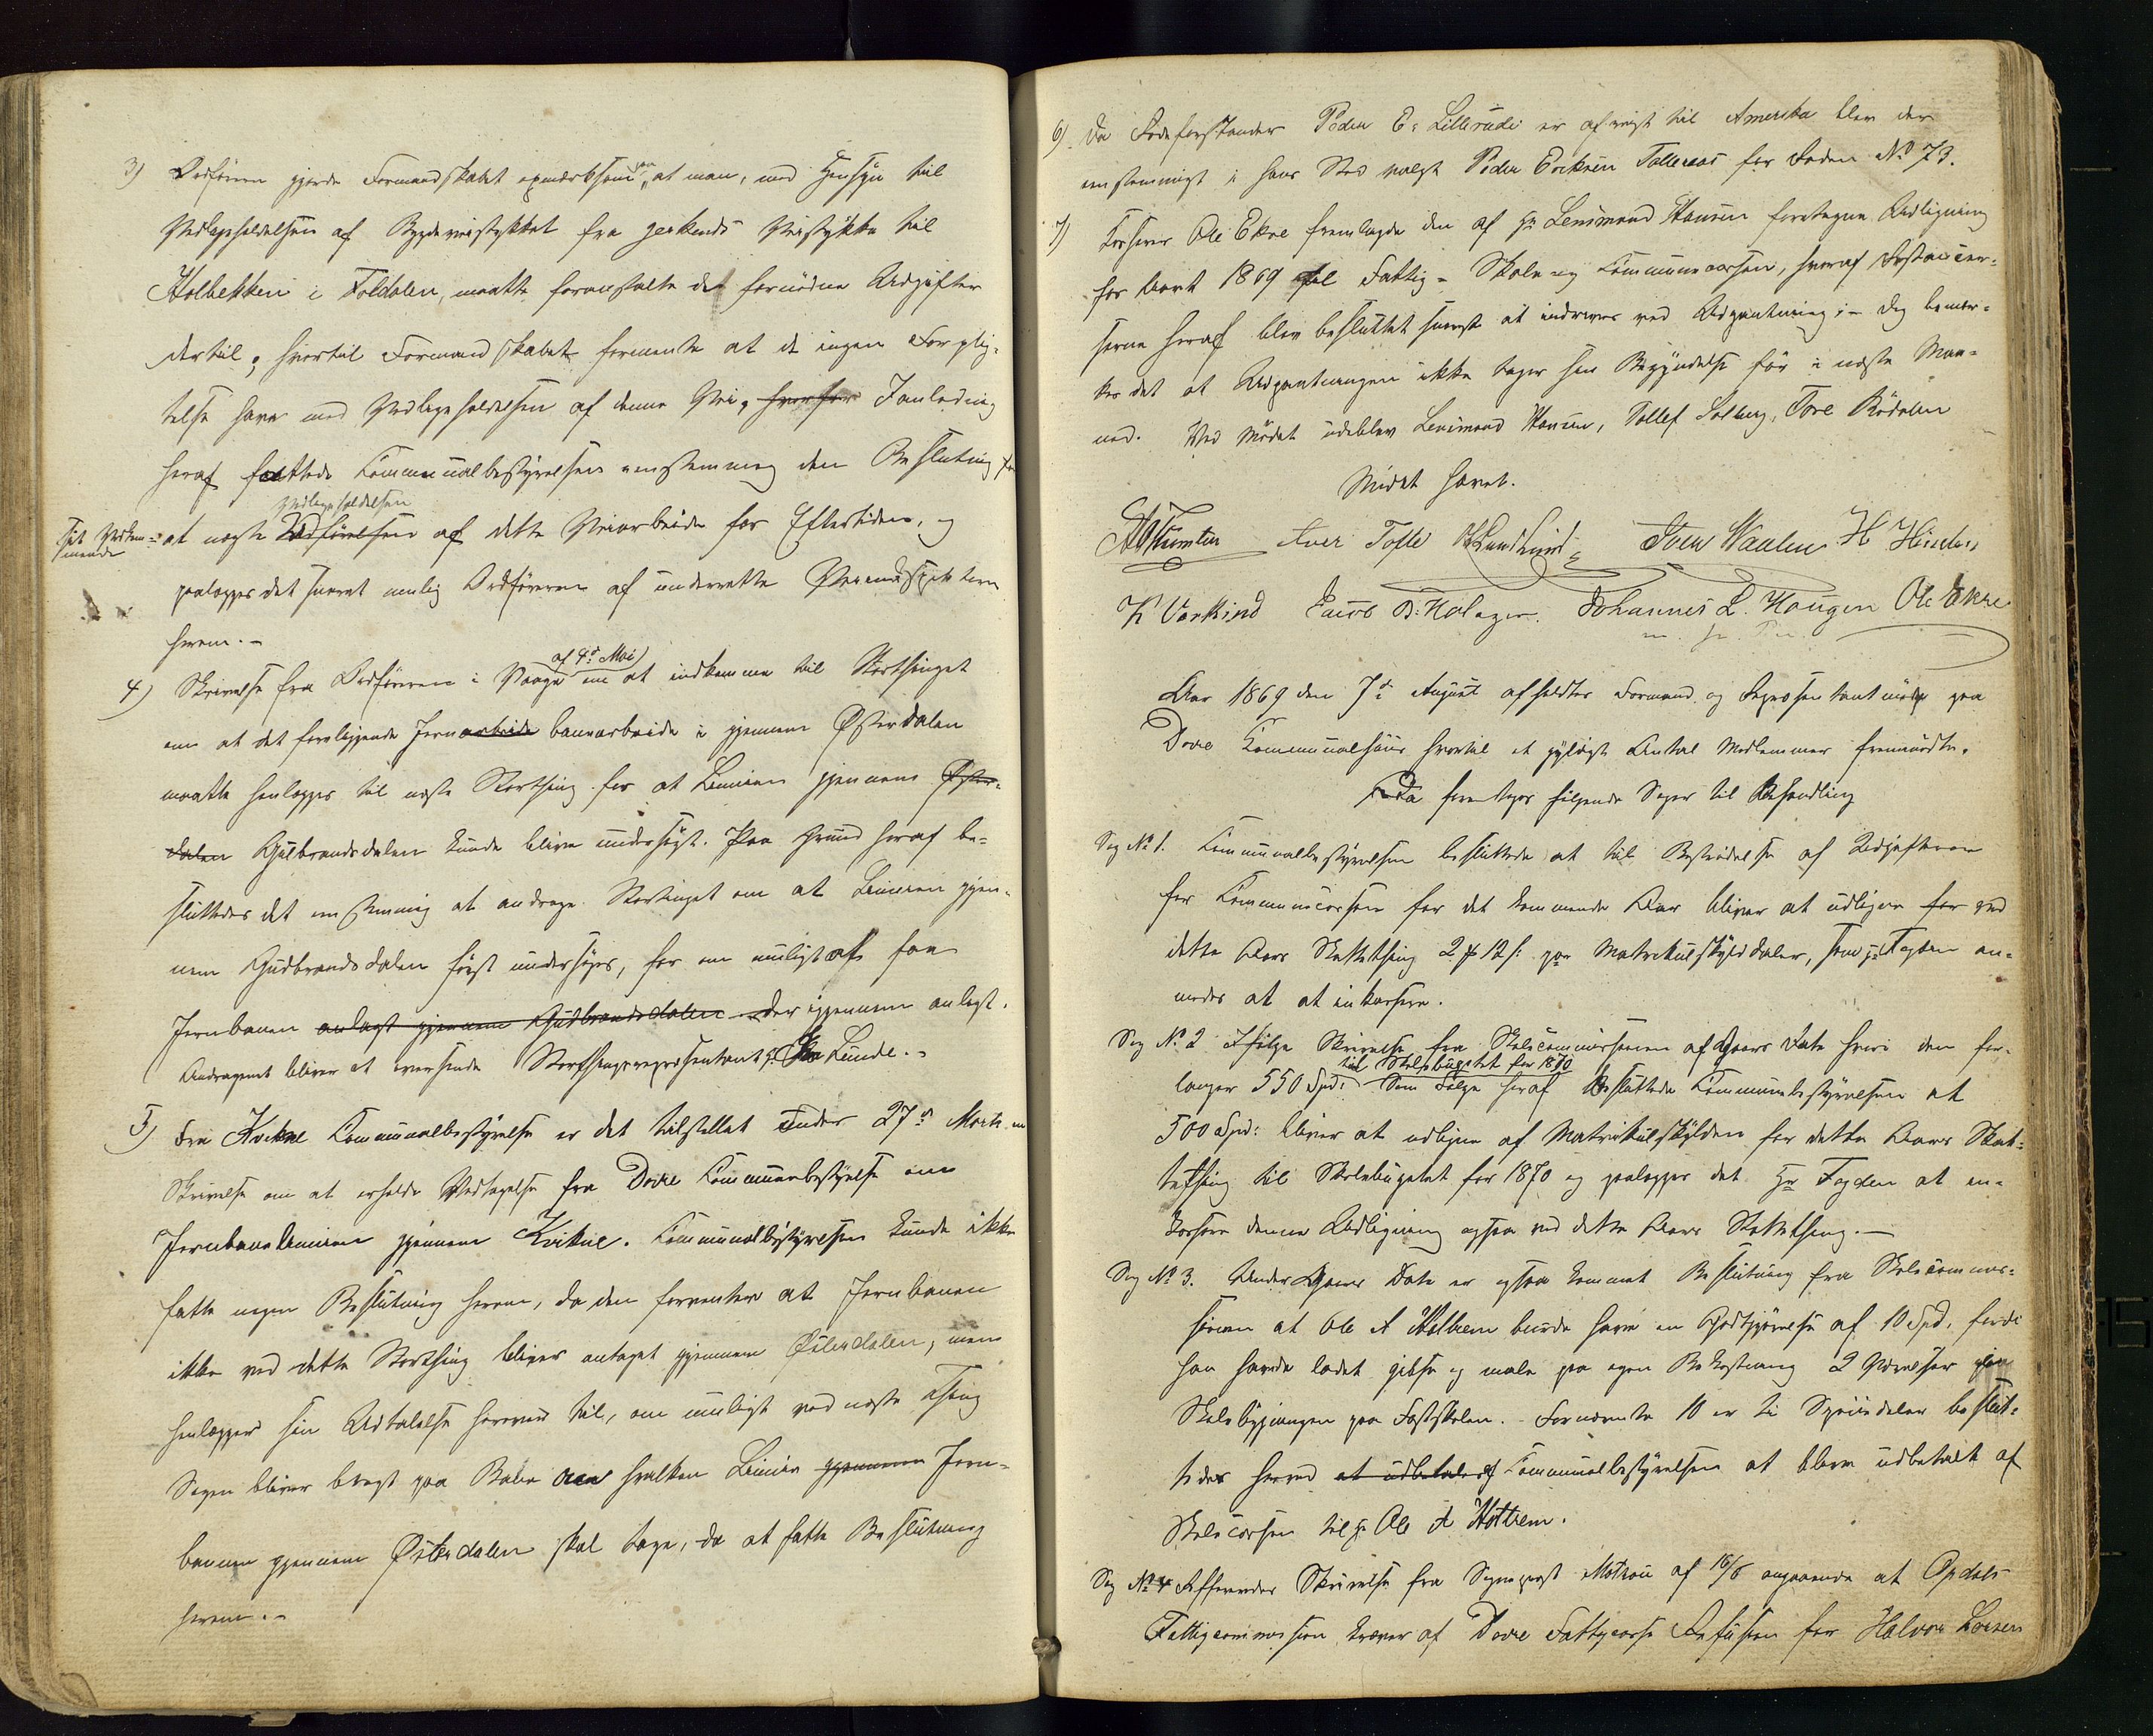 3) Ordføren gjorde Formandskabet opmærksom paa, at man, med Hensyn til
Vedligeholdelsen af Bygdeveistykket fra Gerkends Veistykke til
Holbekken i Foldalen, maatte foranstalte det fornødne Udgifter
dertil; hvortil Formandskabet formente at de ingen Forplig-
telse have med Vedligeholdelsen af denne Vei, hvorfor I anledning
heraf fattede Communalbestyrelsen eenstemmig den Beslutning
at nægte Vedligeholdelsen Udførelsen af dette Veiarbeide for Eftertiden, og
paalægges det snarest mulig Ordføreren at underrette Veiinspektøren
herom.-
4) Skrivelse fra Ordføreren i Vaage af 4de Mai om at indkomme til Storthinget
om at det foreliggende Jernarbeide banearbeide i gjennem Østerdalen
maatte henlægges til næste Storthing for at Linien gjennem Øster-
dalen Gulbrandsdalen kunde blive undersøgt. Paa Grund heraf be-
sluttedes det eenstemmig at andrage Stortinget om at Linien gjen-
nem Gudbrandsdalen først undersøges, for om muligt at faa
Jernbanen anlagt gjennem Gudbrandsdalen der igjennem anlagt.
Andragenet bliver at oversende Storthingsrepræsentant Hr Lunde.-
5) Fra Kvikne Communalbestyrelse er det tilstillet under 27de Marts en
Skrivelse om at erholde Vedtagelse fra Dovre Communebestyrelse om
Jernbanelinien gjennem Kvikne. Communalbestyrelsen kunde ikke
fatte nogen Beslutning herom, da den forventer at Jernbanen
ikke ved dette Storthing bliver antaget gjennem Østerdalen, men
henlægger sin Udtalelse herom til, om muligt ved næste Thing
Sagen bliver bragt paa Bane om hvilken Linie gjennem Jern-
banen gjennem Østerdalen skal tage, da at fatte Beslutning
herom.-
6) Da Rodeforstander Peder E. Lillerude er afreist til Amerika blev der
eenstemmigt i hans Sted valgt Peder Eriksen Talleraas for Roden No 73.
7) Kasserer Ole Ekre fremlagde den af Hr Lensmand Hansen foretagne Udligning
for Aaret 1869 til Fattig- Skole og Communecassen, hvoraf Restancer-
serne heraf blev besluttet snarest at inddrives ved Udpantning;- dog bemær-
kes det at Udpantningen ikke tager sin Begyndelse før i næste Maa-
ned. Ved Mødet udeblev Lensmand Hansen, Tollef Solberg, Tore Rødølen
Mødet hævet.
Iver Tofte Sven Waalen
K Vorkind Jacob B. Holager. Johannes L. Haugen Ole Ekre
m. f. Pen.
Aar 1869 den 7de August afholdtes Formand og Repræsentantmøde paa
Dovre Communalhuus hvortil et gyldigt Antal Medlemmer fremmødte.
Da foretoges følgende Sager til Behandling
Sag No 1. Communalbestyrelsen besluttede at til Bestridelse af Udgifterne
for Communecassen for det kommende Aar bliver at udligne for ved
dette Aars Skattething 2 ₰ 12 s: paa Matrikulskylddaler, som Hr Fogden an-
modes at at inkassere.
Sag No 2 Ifølge Skrivelse fra Skolecommissionen af Gaars Dato hvori den for-
langer 550 Spd: til Skolebugetet for 1870 Som Følge heraf besluttede Communebestyrelsen at
500 Spd: bliver at udligne af Matrikulskylden for dette Aars Skat-
tething til Skolebugetet for 1870 og paalægges det Hr Fogden at in-
kassere denne Udligning ogsaa ved dette Aars Skattething.-
Sag No 3. Under Gaars Dato er ogsaa kommet Beslutning fra Skolecommis-
sionen at Ole A Hattrem burde have en Godtgjørelse af 10 Spd, fordi
han havde ladet gibse og male paa egen Bekostning 2 Værelser
Skolebygningen paa Fastskolen.- Fornævnte 10 er ti Speciedaler beslut-
tedes herved at udbetale af Communalbestyrelsen at blive udbetalt af
Skolecassen til Hr Ole A Hattrem.
Sag No 4 Refferredes Skrivelse fra Sogneprest Motzau af 16/6 angaaende at Opdals
Fattigcommission krever af Dovre Fattigcasse Refusion for Halvor Larsen